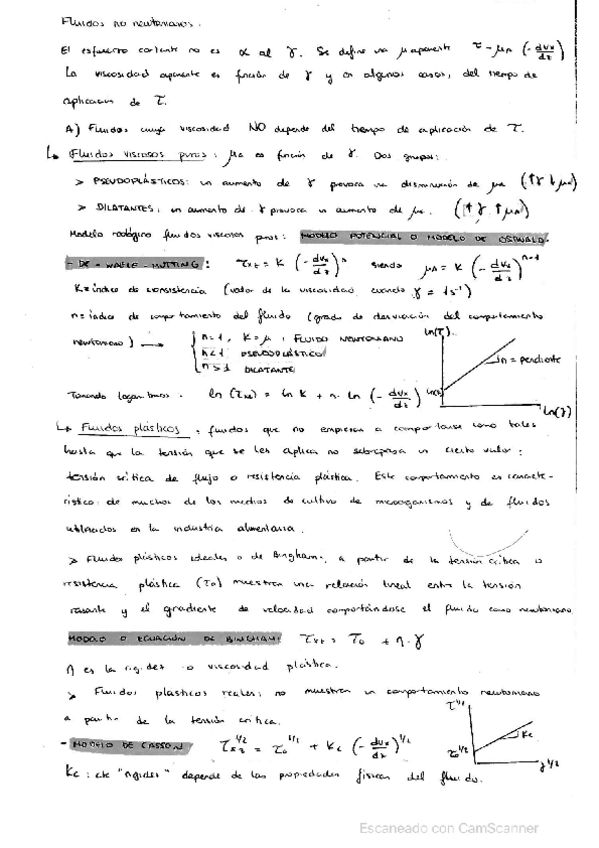 Fluidos no newtonianos.
El esfuerzo cortante no es α al γ. Se define una μ aparente τ = μA (- dvx/dz)
La viscosidad aparente es función de γ y en algunos casos, del tiempo de
aplicación de τ.
A) Fluidos cuya viscosidad NO depende del tiempo de aplicación de τ.
↳ Fluidos viscosos puros: μA es función de γ. Dos grupos:
> PSEUDOPLÁSTICOS: un aumento de γ provoca una disminución de μA (↑γ ↓μA)
> DILATANTES: un aumento de γ provoca un aumento de μA. (↑γ. ↑μA)
Modelo reológico fluidos viscosos puros: MODELO POTENCIAL O MODELO DE OSTWALD-
- DE - WAELE - NUTTING: τxz = K (- dvx/dz)^n siendo μA = K (- dvx/dz)^n-1
K = índice de consistencia (valor de la viscosidad cuando γ = 1 s^-1)
n = índice de comportamiento del fluido (grado de desviación del comportamiento
newtoniano) → { n=1, K=μ, FLUIDO NEWTONIANO
n<1 PSEUDOPLÁSTICO
n>1 DILATANTE
ln(τ)
n = pendiente
ln(K)
ln(γ)
Tomando logaritmos. ln (τxz) = ln K + n. ln (- dvx/dz)
↳ Fluidos plásticos: fluidos que no empiezan a comportarse como tales
hasta que la tensión que se les aplica no sobrepasa un cierto valor:
tensión crítica de flujo o resistencia plástica. Este comportamiento es caracte-
rístico de muchos de los medios de cultivo de microorganismos y de fluidos
utilizados en la industria alimentaria.
> Fluidos plásticos ideales o de Bingham: a partir de la tensión crítica o
resistencia plástica (τ0) muestran una relación lineal entre la tensión
rasante y el gradiente de velocidad comportándose el fluido como newtoniano
MODELO O ECUACIÓN DE BINGHAM: τxz = τ0 + η · γ
η es la rigidez o viscosidad plástica.
> Fluidos plásticos reales: no muestran un comportamiento newtoniano
a partir de la tensión crítica.
- MODELO DE CASSON τxz^1/2 = τ0^1/2 + Kc (- dvx/dz)^1/2
τ^1/2
Kc
τ0^1/2
γ^1/2
Kc: cte "rigidez" depende de las propiedades físicas del fluido.
Escaneado con CamScanner